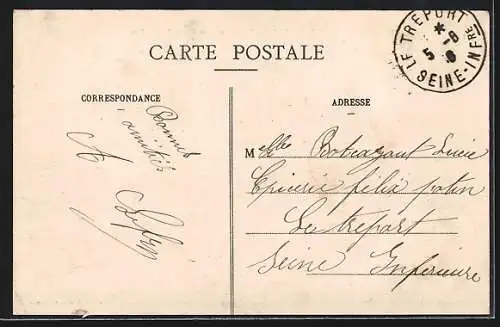 CARTE POSTALE
LE TREPORT
* 
5 -8
SEINE-INFRE
CORRESPONDANCE
ADRESSE
Bonnes
amitiés
A
Melle Botrazant Lucie
Epicerie félix potin
Le treport
Seine Inferieure